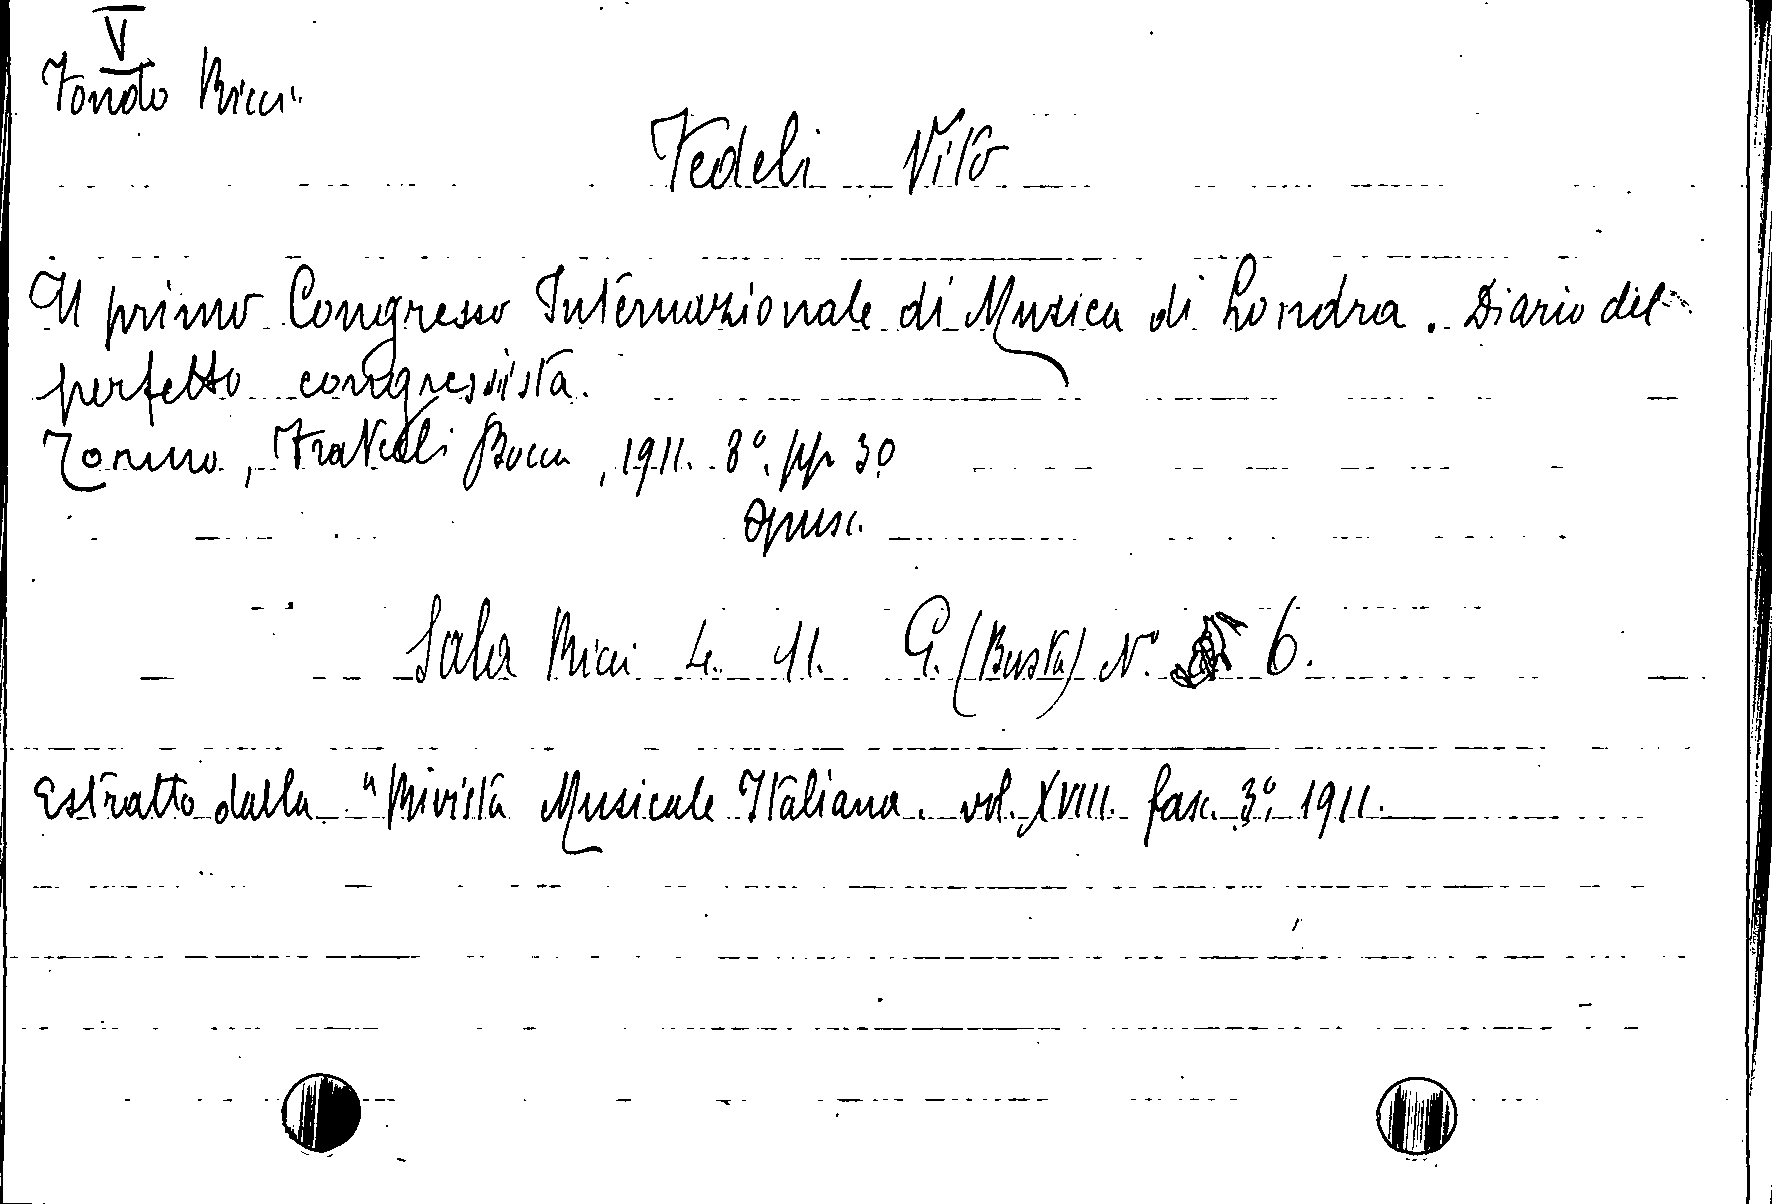 V
Fondo Ricci
Fedeli Vito
Il primo Congresso Internazionale di Musica di Londra. Diario del
perfetto congressista.
Torino, Fratelli Bocca, 1911. 8°. pp 30
Opusc.
Sala Ricci L. 11. G. (Busta) N° 6.
Estratto dalla "Rivista Musicale Italiana. vol. XVIII. fasc. 3° 1911.